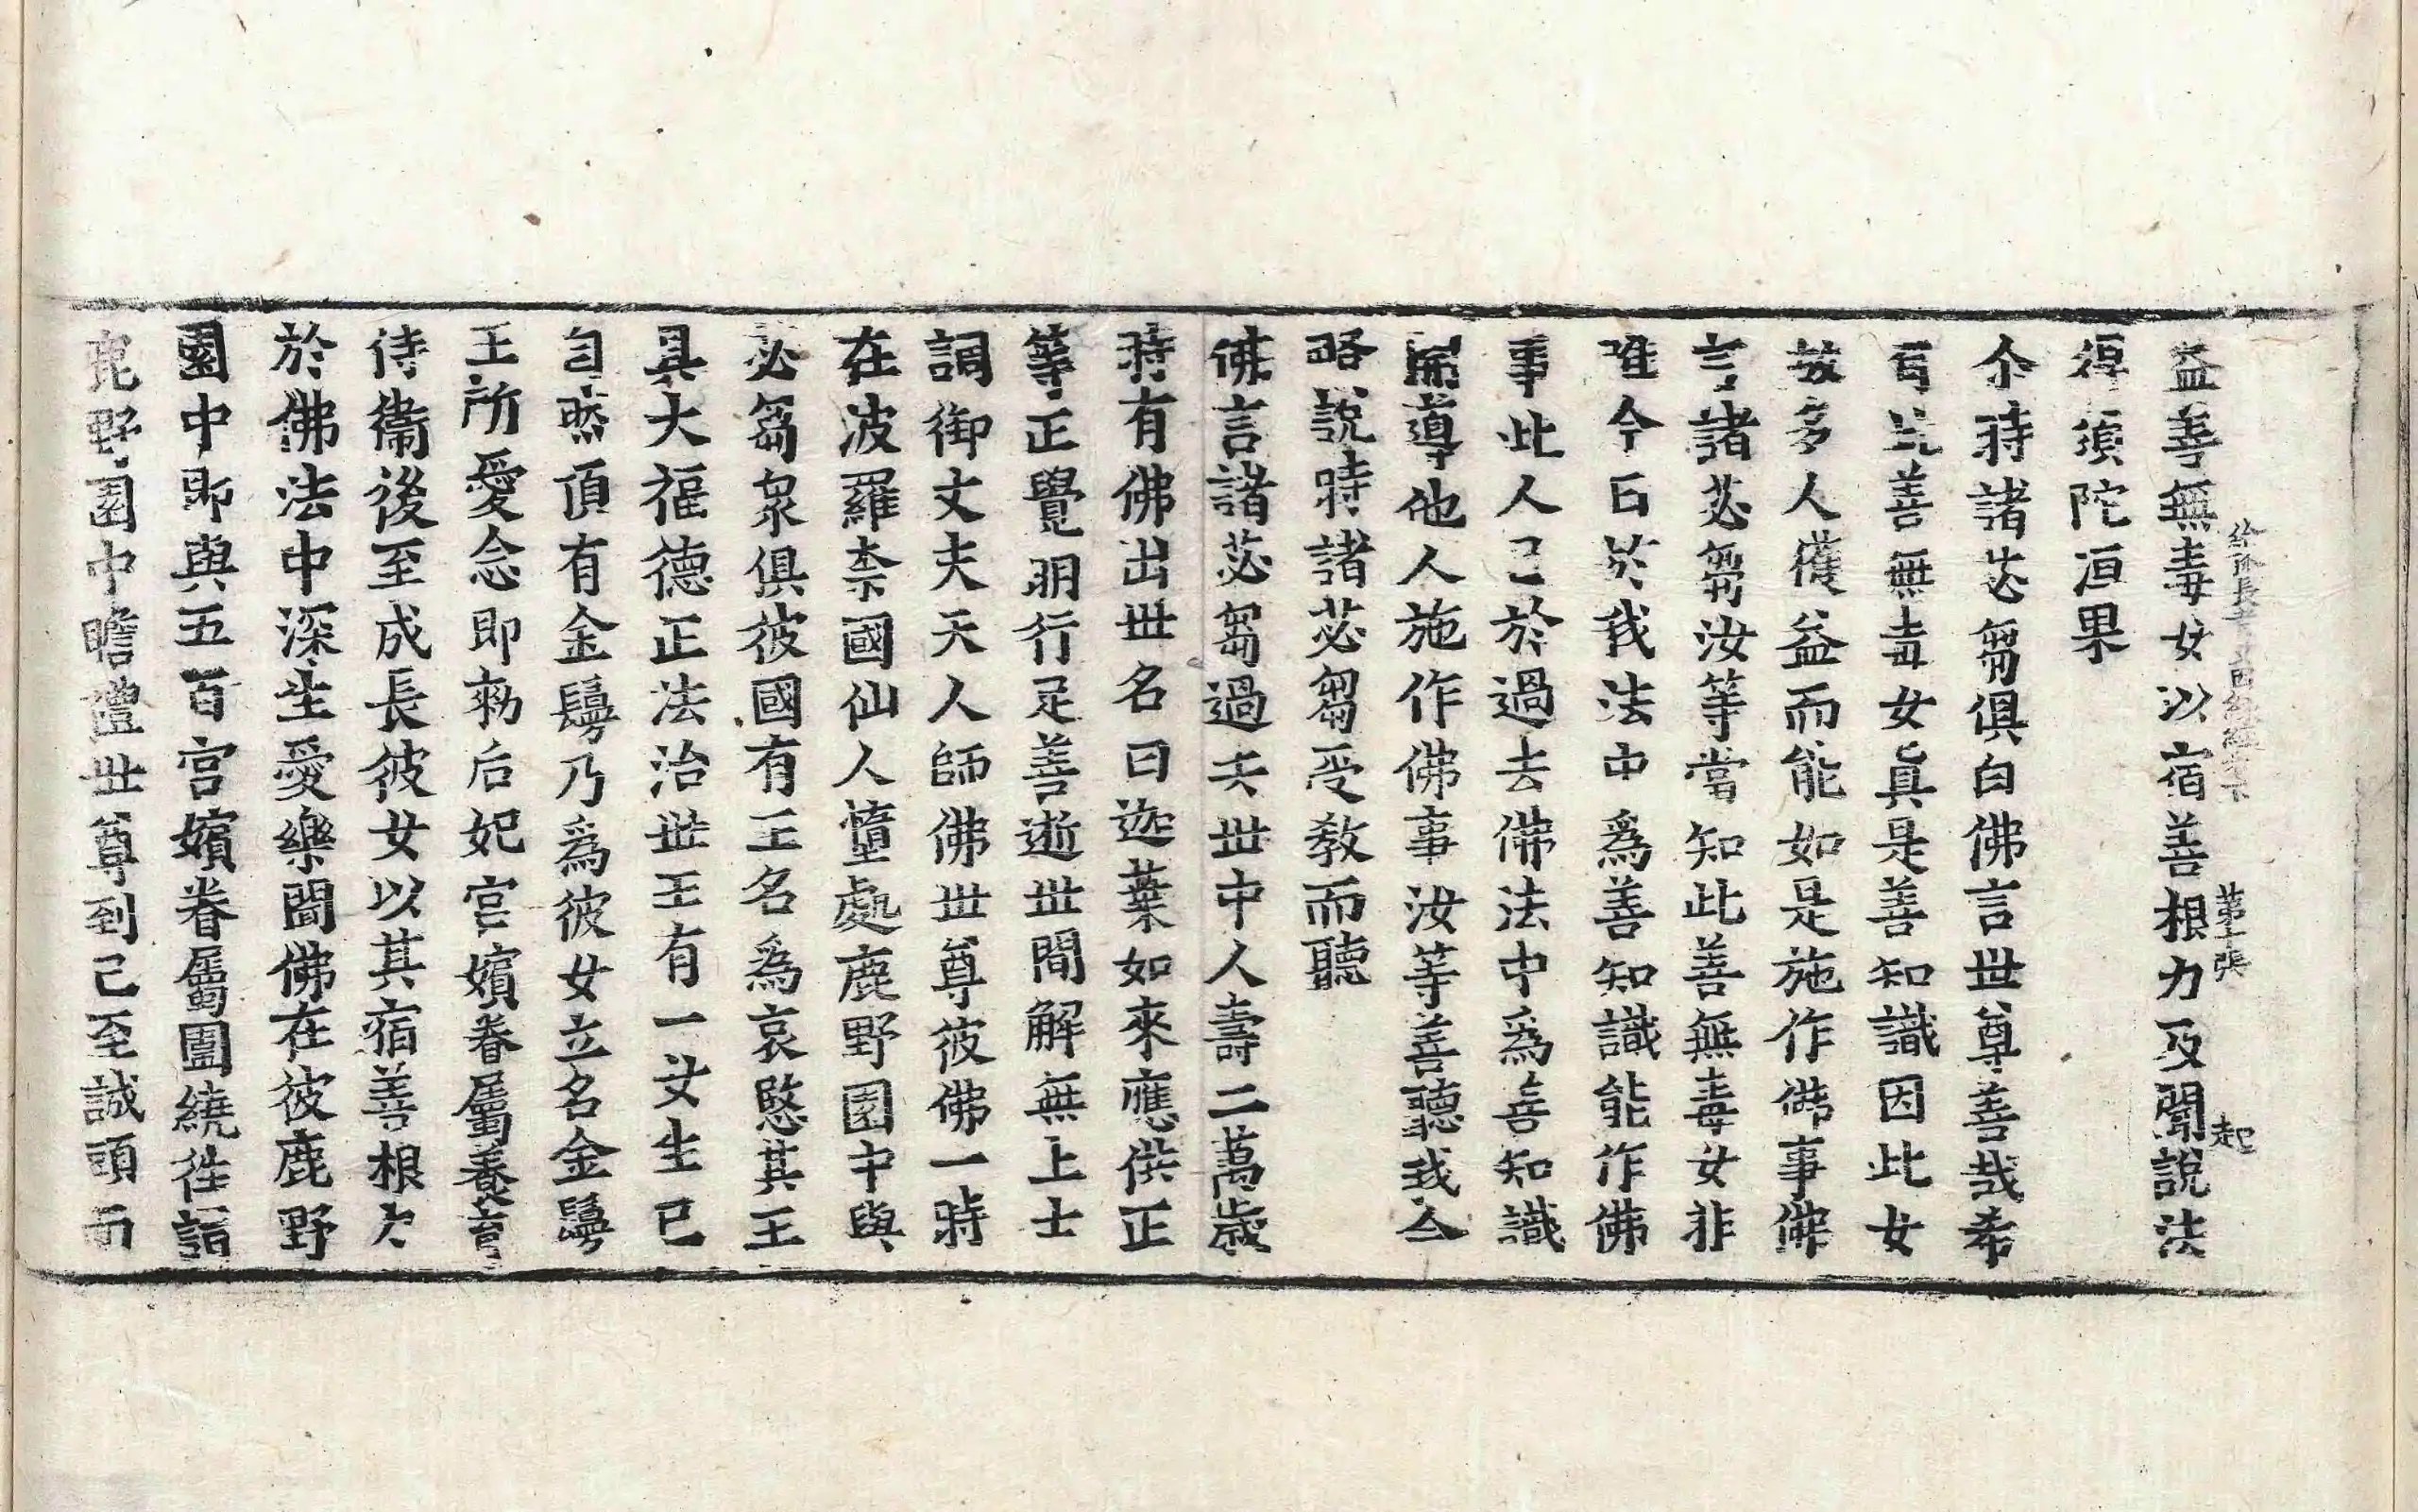 益善無毒女以宿善根力及聞說法
給孤長者女因緣經卷下 第十張 起
得須陀洹果
尒時諸苾芻俱白佛言世尊善哉希
有此善無毒女真是善知識因此女
故多人獲益而能如是施作佛事佛
言諸苾芻汝等當知此善無毒女非
唯今日於我法中爲善知識能作佛
事此人已於過去佛法中爲善知識
開導他人施作佛事汝等善聽我今
略說時諸苾芻受教而聽
佛言諸苾芻過去世中人壽二萬歲
時有佛出世名曰迦葉如來應供正
等正覺明行足善逝世間解無上士
調御丈夫天人師佛世尊彼佛一時
在波羅柰國仙人墮處鹿野園中與
苾芻衆俱彼國有王名爲哀愍其王
具大福德正法治世王有一女生已
自然頂有金鬘乃爲彼女立名金鬘
王所愛念即勑后妃宮嬪眷屬養育
侍衞後至成長彼女以其宿善根力
於佛法中深生愛樂聞佛在彼鹿野
園中即與五百宮嬪眷屬圍繞往詣
鹿野園中瞻禮世尊到已至誠頭面